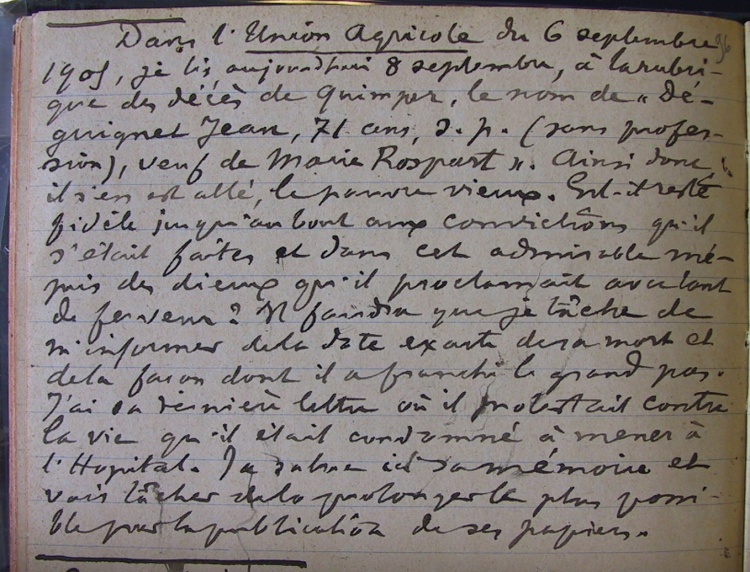 Dans l'Union Agricole du 6 septembre
1905, je lis, aujourdhui 8 septembre, à la rubri-
que des décès de Quimper, le nom de « Dé-
guignet Jean, 71 ans, s. p. (sans profes-
sion), veuf de Marie Rospart ». Ainsi donc
il s'en est allé, le pauvre vieux. Est-il resté
fidèle jusqu'au bout aux convictions qu'il
s'était faites et dans cet admirable mé-
pris des dieux qu'il proclamait avec tant
de ferveur ? Il faudra que je tâche de
m'informer de la date exacte de sa mort et
de la façon dont il a franchi le grand pas.
J'ai sa dernière lettre où il protestait contre
la vie qu'il était condamné à mener à
l'Hopital. Je salue ici sa mémoire et
vais tâcher de la prolonger le plus possi-
ble par la publication de ses papiers.